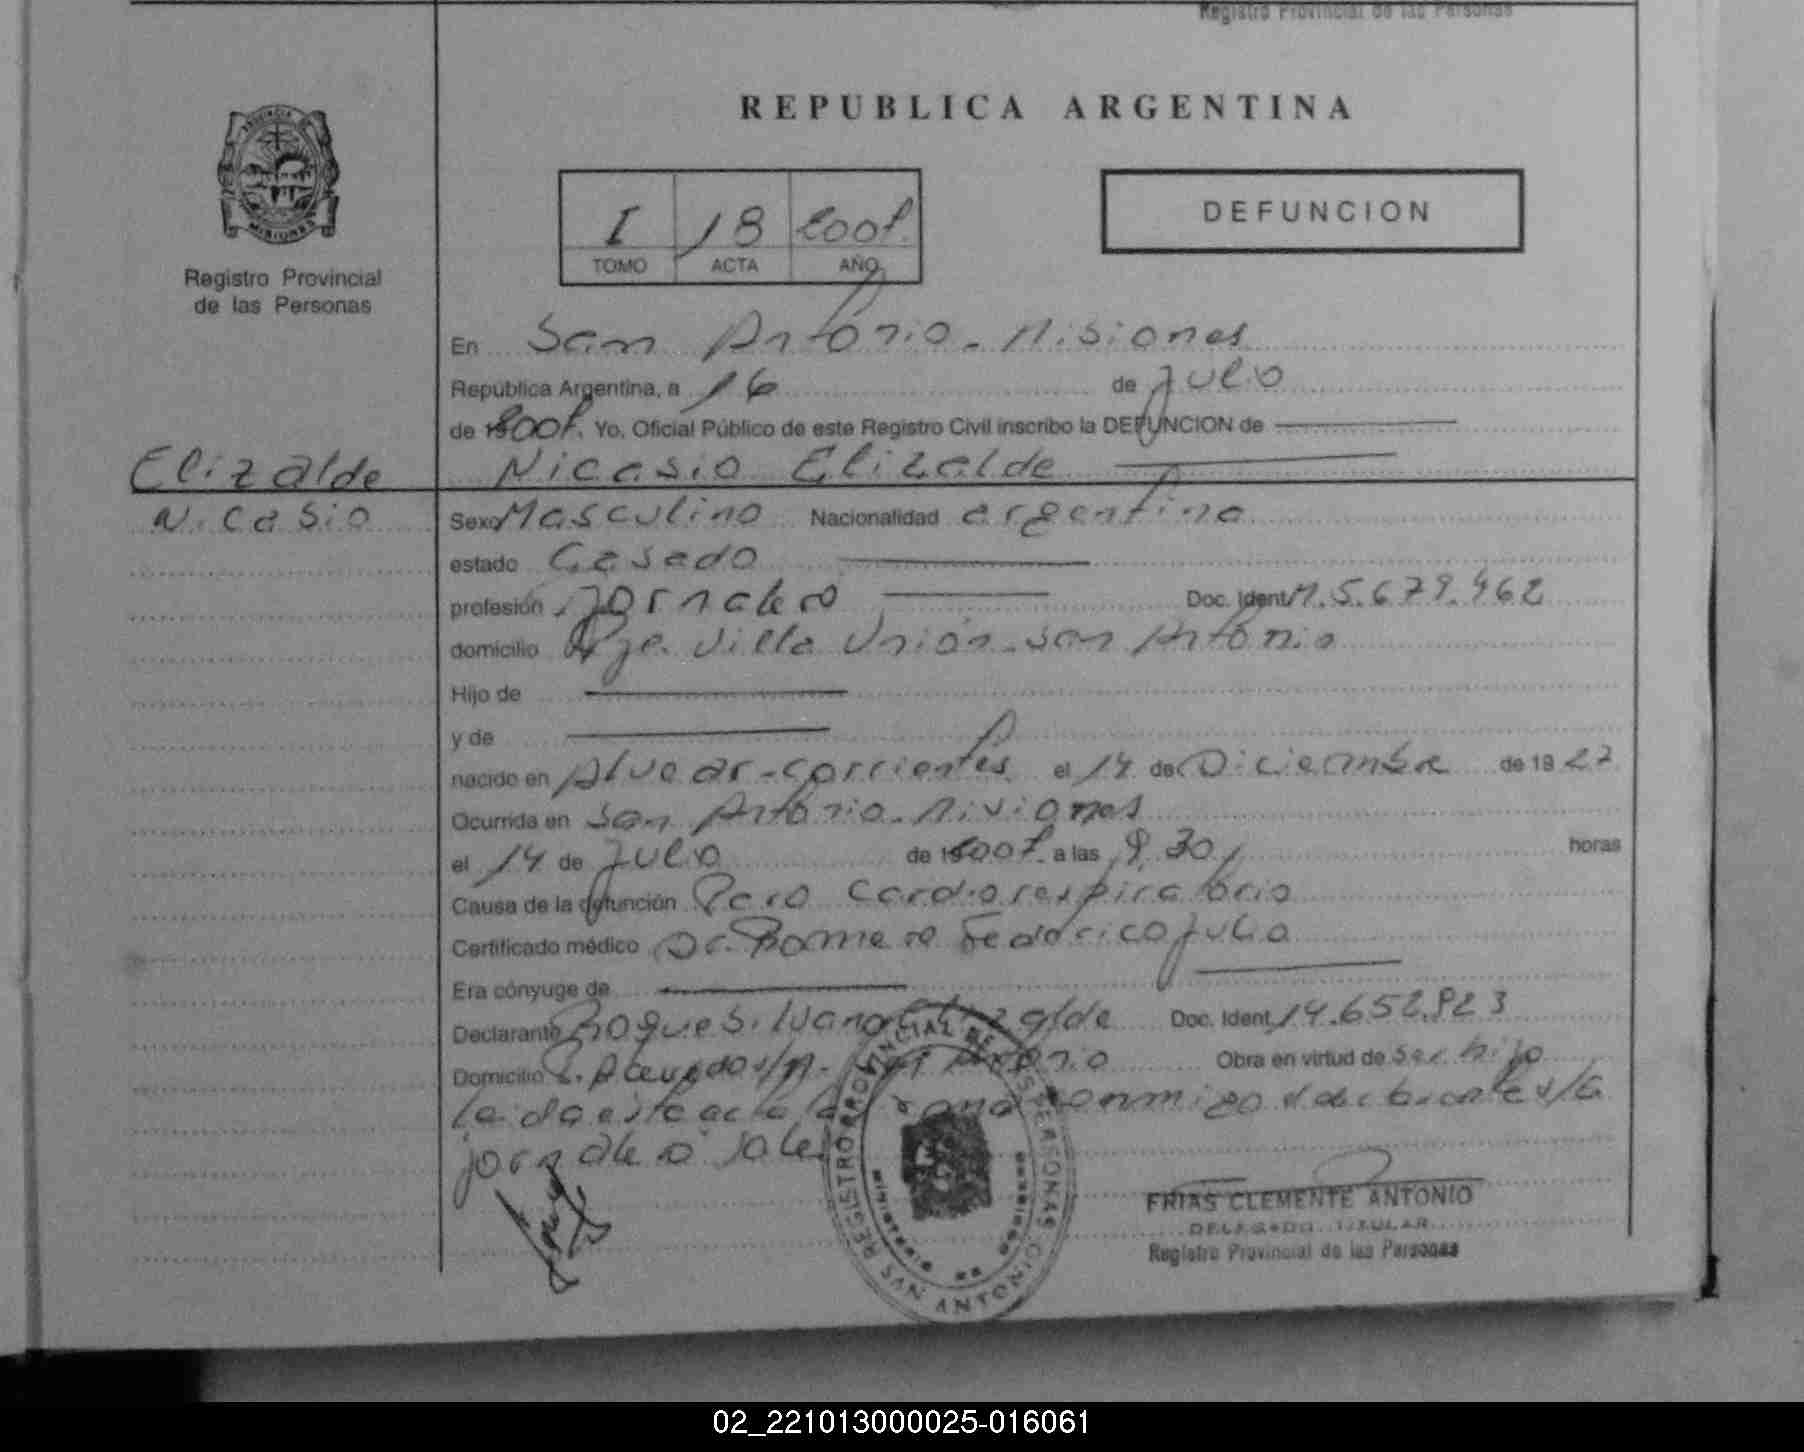 Registro Provincial de las Personas
REPUBLICA ARGENTINA
PROVINCIA DE
MISIONES
Registro Provincial
de las Personas
I 18 2001.
TOMO ACTA AÑO
DEFUNCION
En San Antonio - Misiones
República Argentina, a 16 de Julio
de 19 2001. Yo, Oficial Público de este Registro Civil inscribo la DEFUNCION de
Nicasio Elizalde
Elizalde
Nicasio
Sexo Masculino Nacionalidad argentina
estado Casado
profesión Jornalero Doc. Ident. M.5.679.462
domicilio Pje. Villa Unión - San Antonio
Hijo de
y de
nacido en Alvear - Corrientes el 14 de Diciembre de 19 27
Ocurrida en San Antonio - Misiones
el 14 de Julio de 19 2001. a las 9,30, horas
Causa de la defunción Paro Cardiorespiratorio
Certificado médico Dr. Romero Federico Julio
Era cónyuge de
Declarante Roque Silvano Elizalde Doc. Ident. 14.652.923
Domicilio s/n. San Antonio Obra en virtud de ser hijo
Leida esta acta la firma conmigo el declarante s/a
jornalero
REGISTRO PROVINCIAL DE LAS PERSONAS
MINISTERIO DE GOBIERNO
SAN ANTONIO
FRIAS CLEMENTE ANTONIO
DELEGADO TITULAR
Registro Provincial de las Personas
02_221013000025-016061